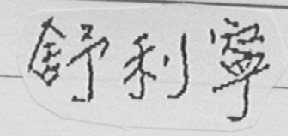 舒利寧